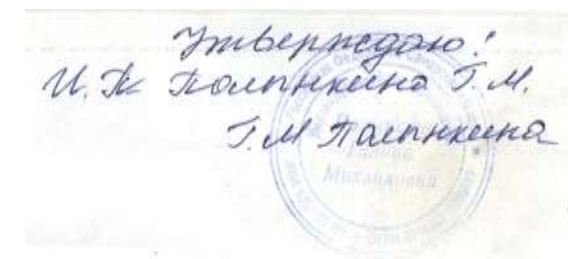 Утверждаю!
И.П. Полынкина Г.М.
Г.М Полынкина
Галина
Михайловна